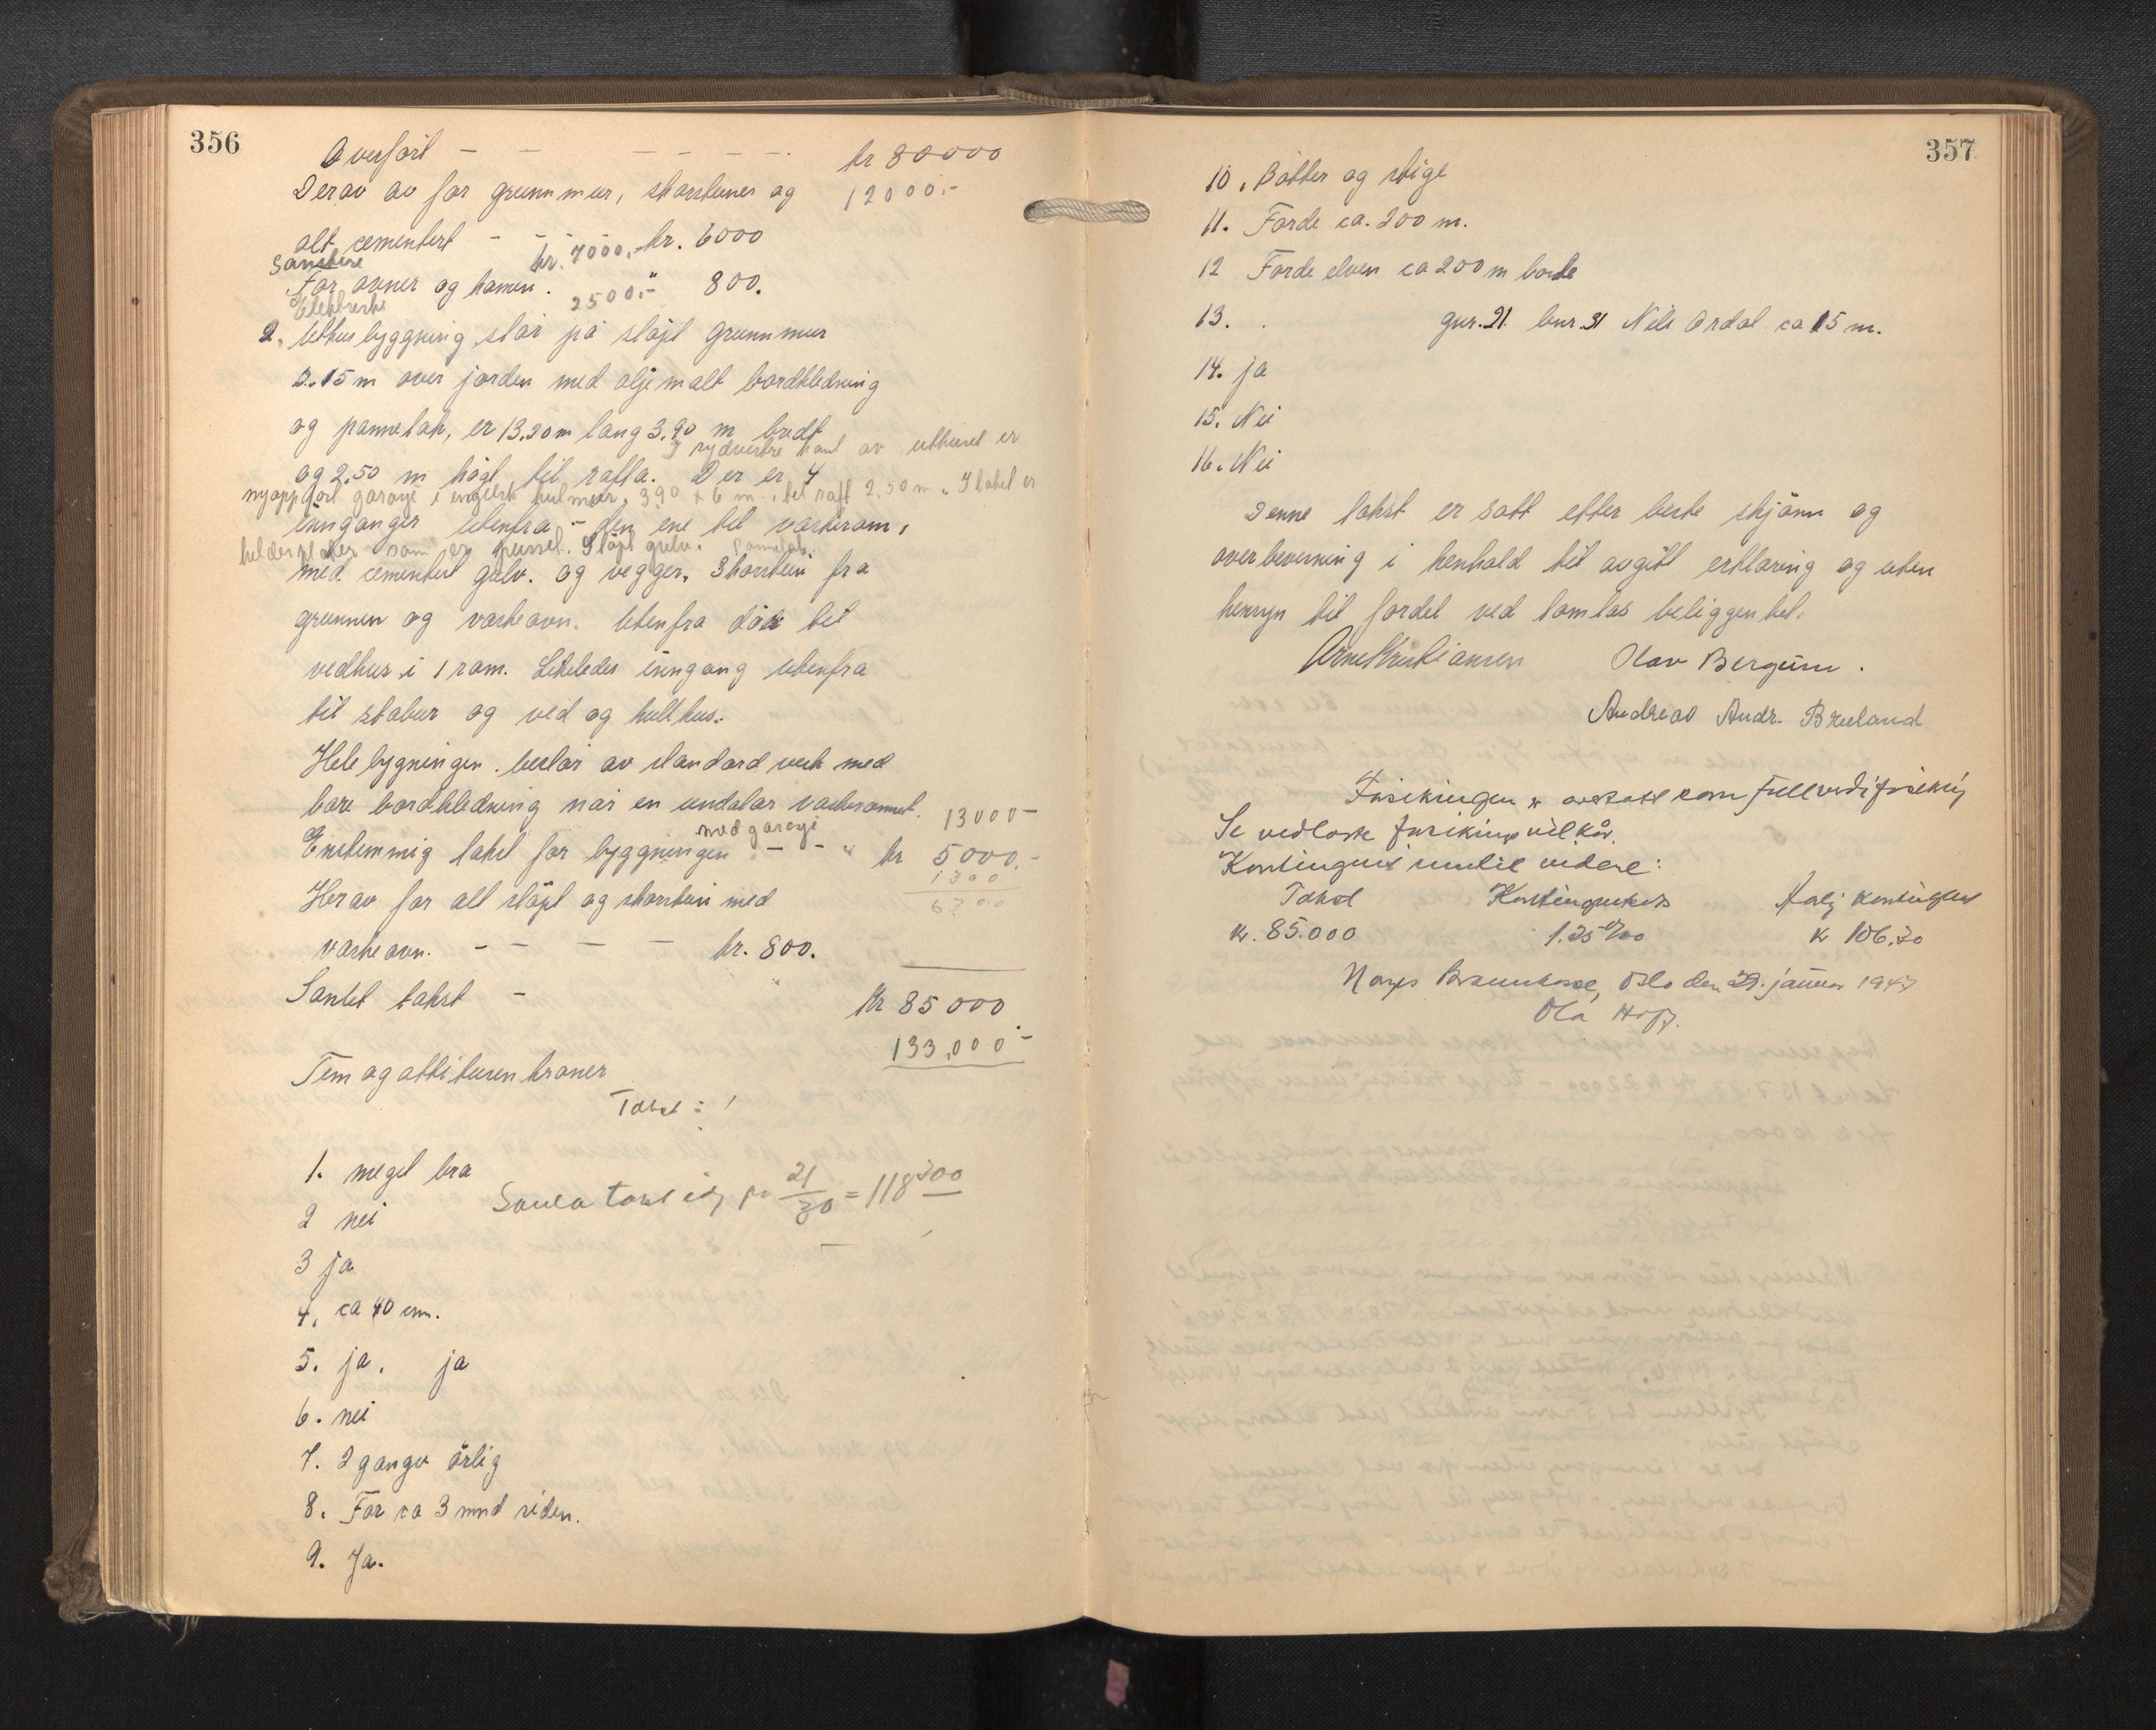 356
Overført - - - - - - kr 80000
Derav av for grunnmur, skorsteiner og 12000.-
alt cementert - - - kr. 6000
Sanitære kr. 7000.-
For ovner og kamin. " 800.
Elektriske 2500.-
2. Uthusbyggning står på støpt grunnmur
0.15 m over jorden med oljemalt bordkledning
og pannetak, er 13.20 m lang 3.90 m bredt
I sydvestre kant av uthuset er
og 2.50 m høgt til rafta. Der er 4
nyoppført garage i engelsk hulmur, 3.90 x 6 m. til raft 2.50 m. I taket er
innganger utenfra - den ene til vaskerom,
som er pusset. Støpt gulv. Pannetak.
med cementert gulv. og vegger. Skorstein fra
grunnen og vaskeovn. Utenfra dør til
vedhus i 1 rom. Likeledes inngang utenfra
til stabur og ved og kullhus.
Hele bygningen består av standard verk med
bare bordkledning når en undtar vaskerommet. 13000-
med garage
Enstemmig takst for byggningen - - " kr 5000.-
1300
Herav for alt støpt og skorstein med
6700
vaskeovn. - - - - kr. 800.
Samlet takst - " kr 85000
133.000.-
Fem og åttitusen kroner
Takst:
1. meget bra
Samla takst pr 21/30 = 118300
2 nei
3 ja
4. ca 40 cm.
5. ja. ja
6. nei
7. 2 ganger årlig
8. For ca 3 mnd siden.
9. Ja.
357
10. Bøtter og stige
11. Førde ca. 200 m.
12 Førde elven ca 200 m borte
13. . gnr. 21. bnr. 31 Nils Ardal ca 15 m.
14. ja
15. Nei
16. Nei
Denne takst er satt etter beste skjønn og
overbevisning i henhold til avgitt erklæring og uten
hensyn til fordel ved tomtas beliggenhet.
Arne Kristiansen Olav Bergum.
Andreas Andr. Bruland
Forsikringen er avsatt som fullverdiforsikring
Se vedlagte forsikringsvilkår.
Kontingent inntil videre:
Takst Kontingentsats Årlig kontingent
kr. 85.000 1.25 ‰ kr 106.30
Norges Brannkasse, Oslo den 29. januar 1947
Ola